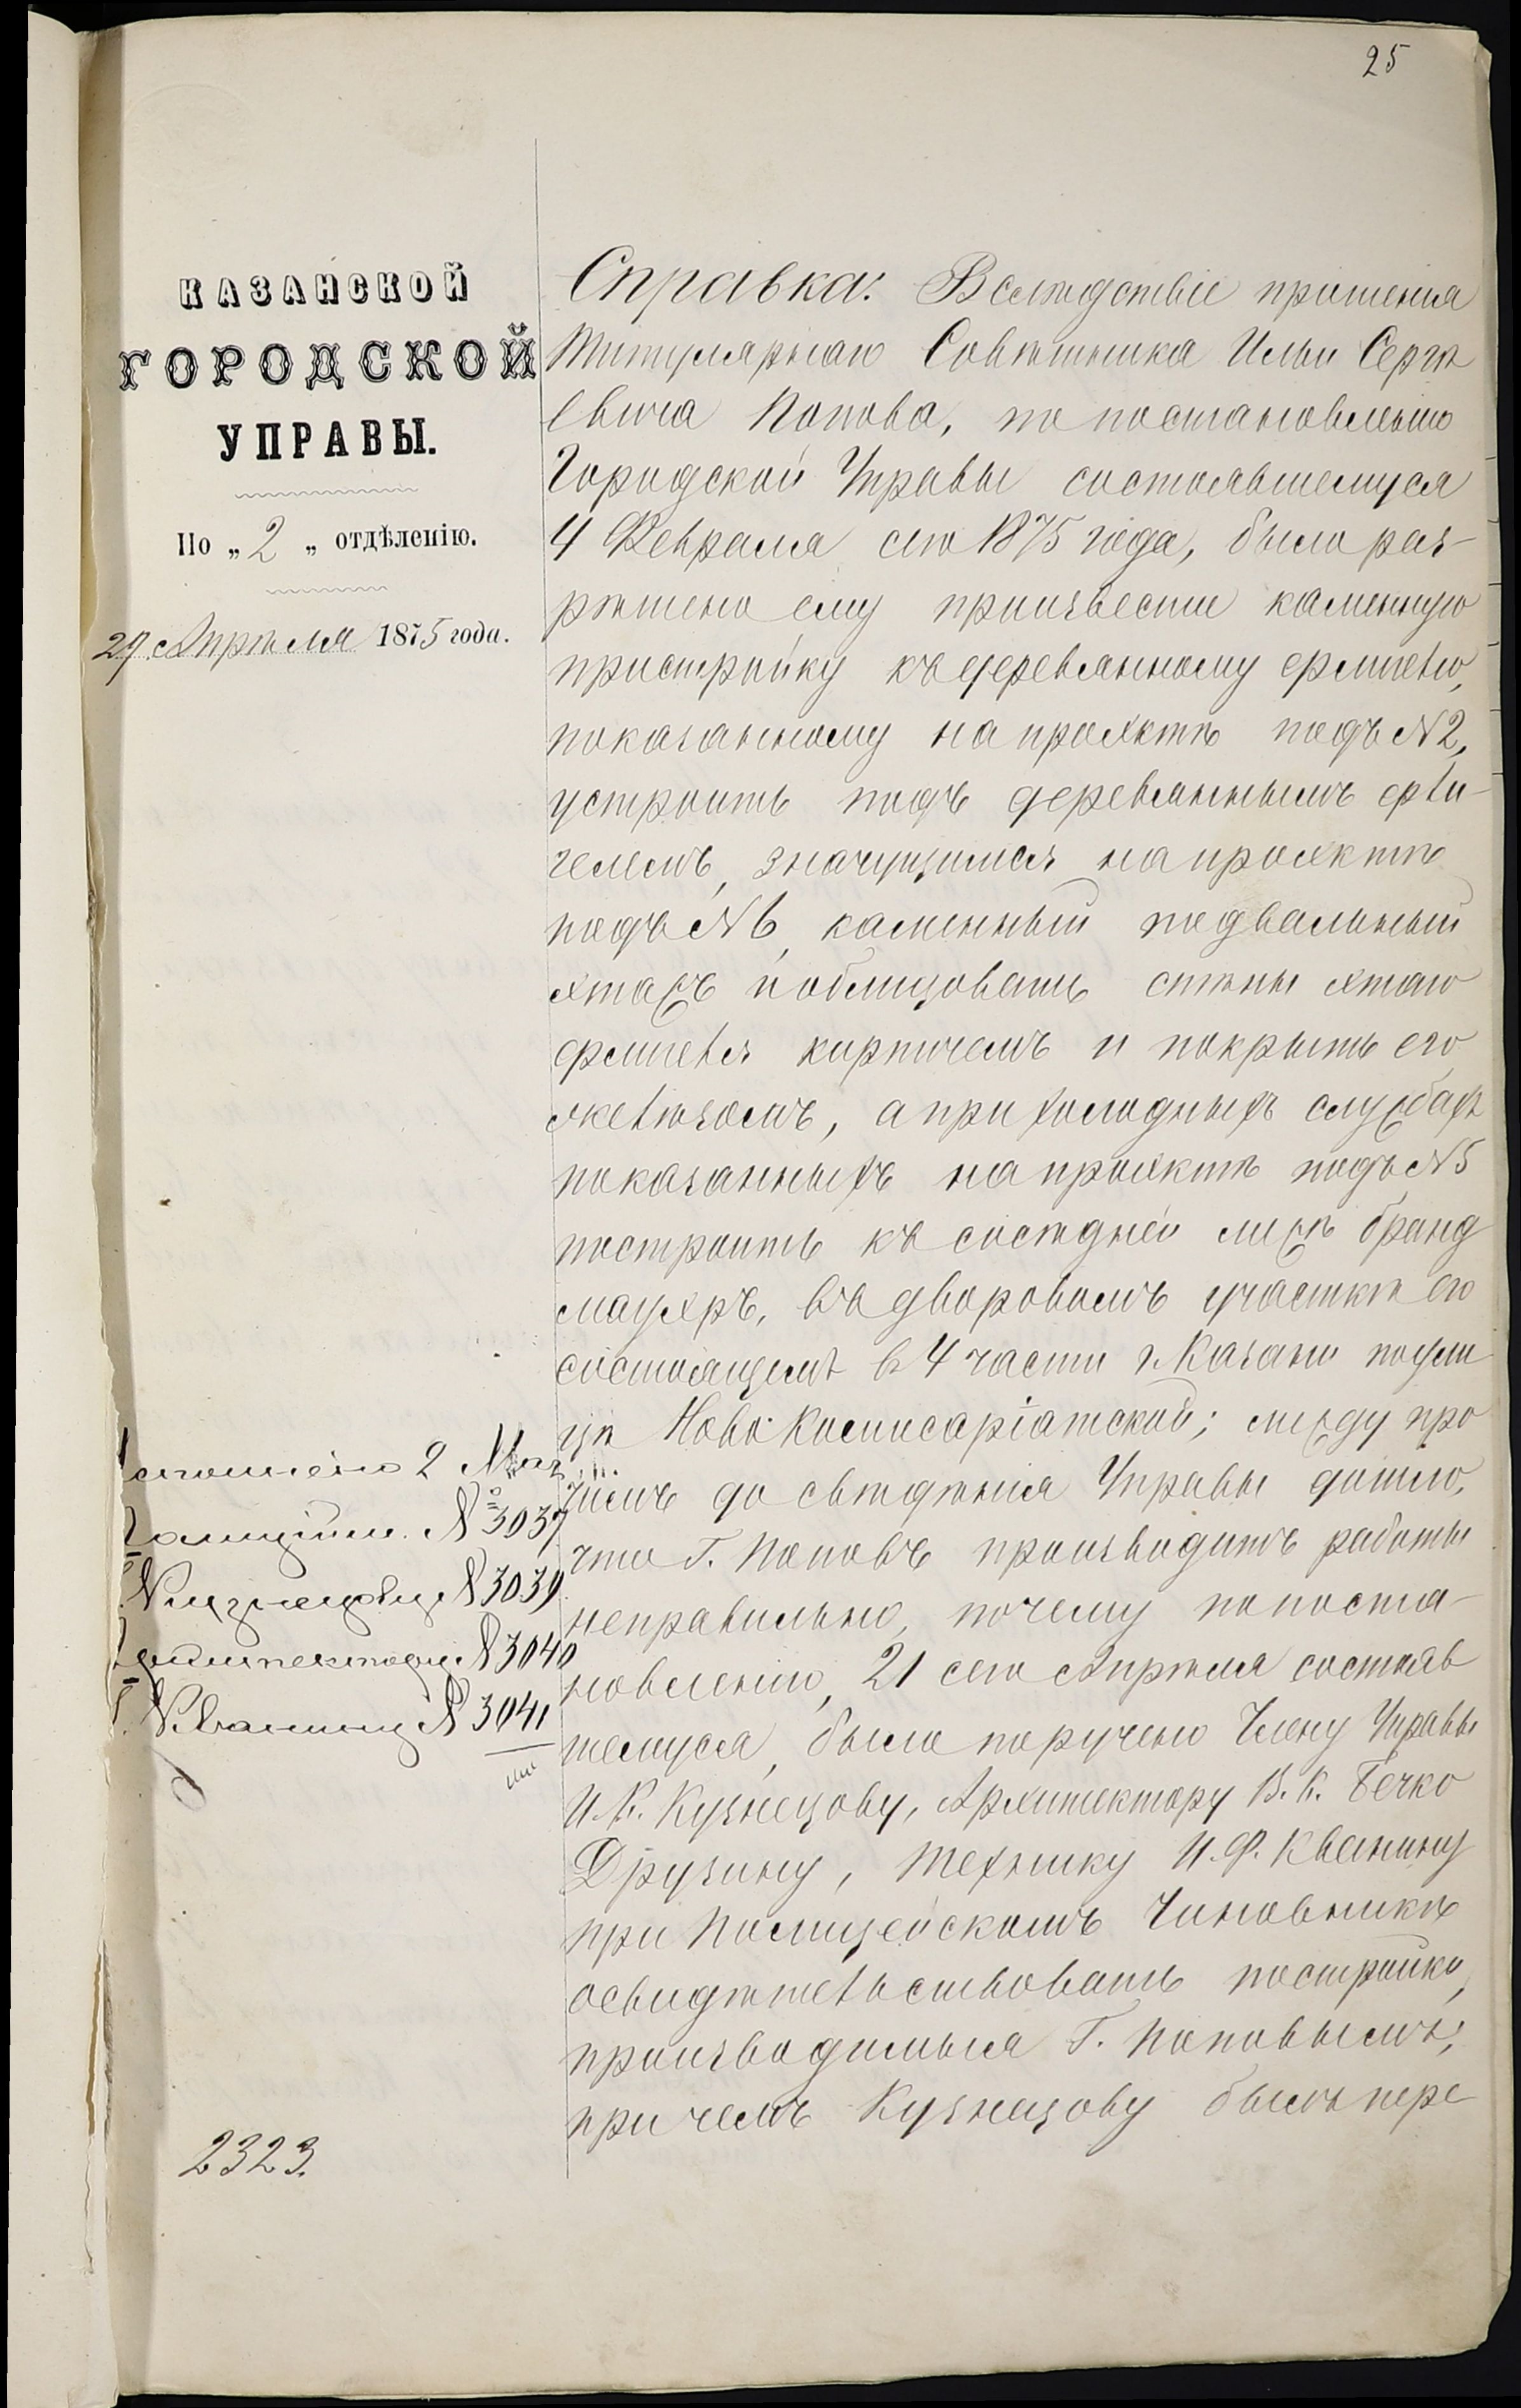 25
КАЗАНСКОЙ
ГОРОДСКОЙ
УПРАВЫ.
По „ 2 „ отдѣленію.
29 Апрѣля 1875 года.
Справка: Вслѣдствіе прошенія
Титулярнаго Совѣтника Ильи Сергѣ
евича Попова, по постановленію
Городской Управы состоявшемуся
4 Февраля сего 1875 года, было раз-
рѣшено ему произвести каменную
пристройку къ деревянному флигелю,
показанному на проэктѣ подъ №2,
устроить подъ деревяннымъ фли-
гелемъ, значущимся на проэктѣ
подъ №6, каменный подвальный
этажъ и облицовать стѣны этаго
флигеля кирпичемъ и покрыть его
желѣзомъ, а при холодныхъ службахъ
показанныхъ на проэктѣ подъ №5
построить къ сосѣдней межѣ бранд
мауэръ, въ дворовомъ участкѣ его
состоящемъ в 4 части г. Казани по ули
цѣ Ново-Комисаріатской; между про
чимъ до свѣдѣнія Управы дошло,
что Г. Поповъ производитъ работы
неправильно, почему по поста-
новленію, 21 сего Апрѣля состояв
шемуся, было поручено Члену Управы
И. К. Кузнецову, Архитектору В. К. Бечко
Друзину, технику И. Ф. Кванину
при Полицейскомъ Чиновникѣ
освидѣтельствовать постройки,
производимыя Г. Поповымъ,
при чемъ Кузнецову былъ пере
2 Мая
Полиціи. № 3037
Кузнецову № 3039
Архитектору № 3040
Г. Кванину № 3041
2323.